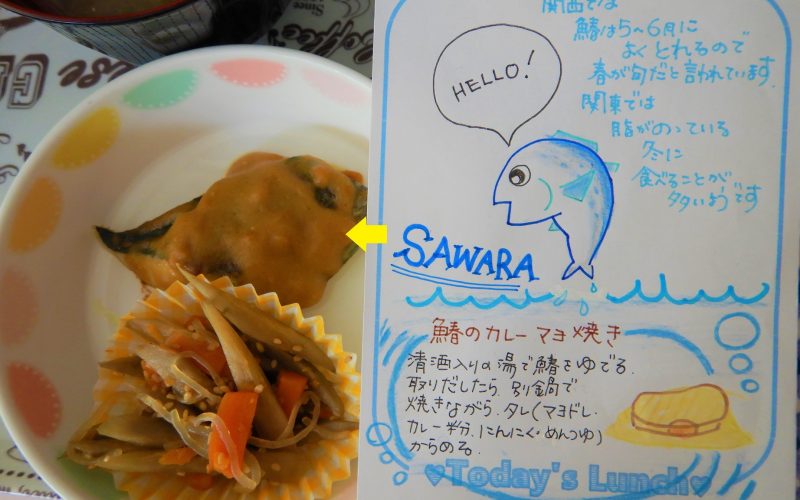 関西では
鰆は5〜6月に
よくとれるので
春が旬だと言われています。
関東では
脂がのっている
冬に
食べることが
多いようです
HELLO!
SAWARA
鰆のカレーマヨ焼き
清酒入りの湯で鰆をゆでる。
取りだしたら、別鍋で
焼きながら、タレ(マヨドレ・
カレー粉、にんにく・めんつゆ)
からめる。
♥Today's Lunch♥
Since